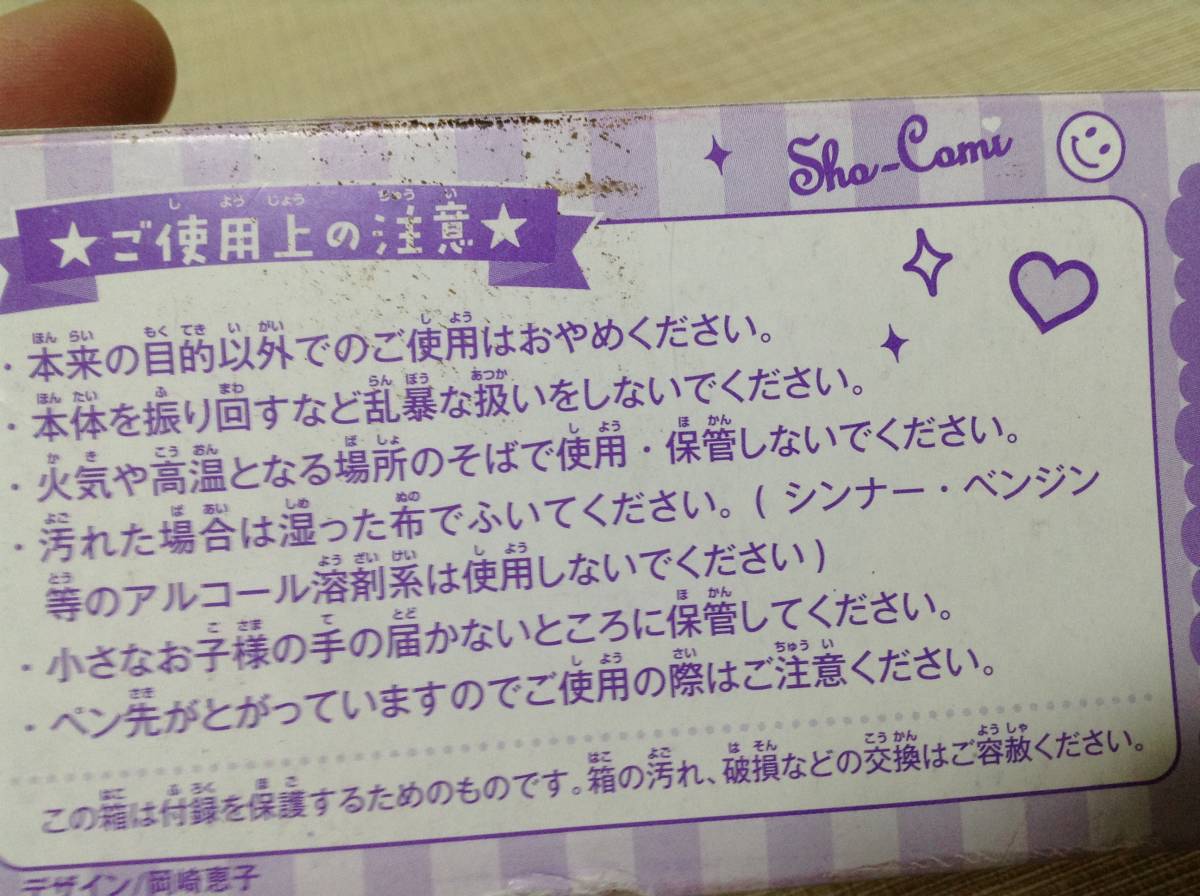 Sho-Comi
★ご使用上の注意★
・本来の目的以外でのご使用はおやめください。
・本体を振り回すなど乱暴な扱いをしないでください。
・火気や高温となる場所のそばで使用・保管しないでください。
・汚れた場合は湿った布でふいてください。(シンナー・ベンジン
等のアルコール溶剤系は使用しないでください)
・小さなお子様の手の届かないところに保管してください。
・ペン先がとがっていますのでご使用の際はご注意ください。
この箱は付録を保護するためのものです。箱の汚れ、破損などの交換はご容赦ください。
デザイン/岡崎恵子